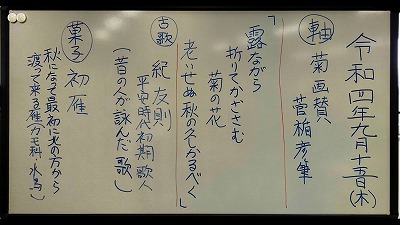 令和四年九月十五日(木)
軸 菊画賛 菅楯彦筆
「露ながら
折りてかざさむ
菊の花
老いせぬ秋の久しかるべく」
古歌 紀友則
平安時代初期歌人
(昔の人が詠んだ歌)
菓子 初雁
秋になって最初に北の方から
渡って来る雁(カモ科水鳥)